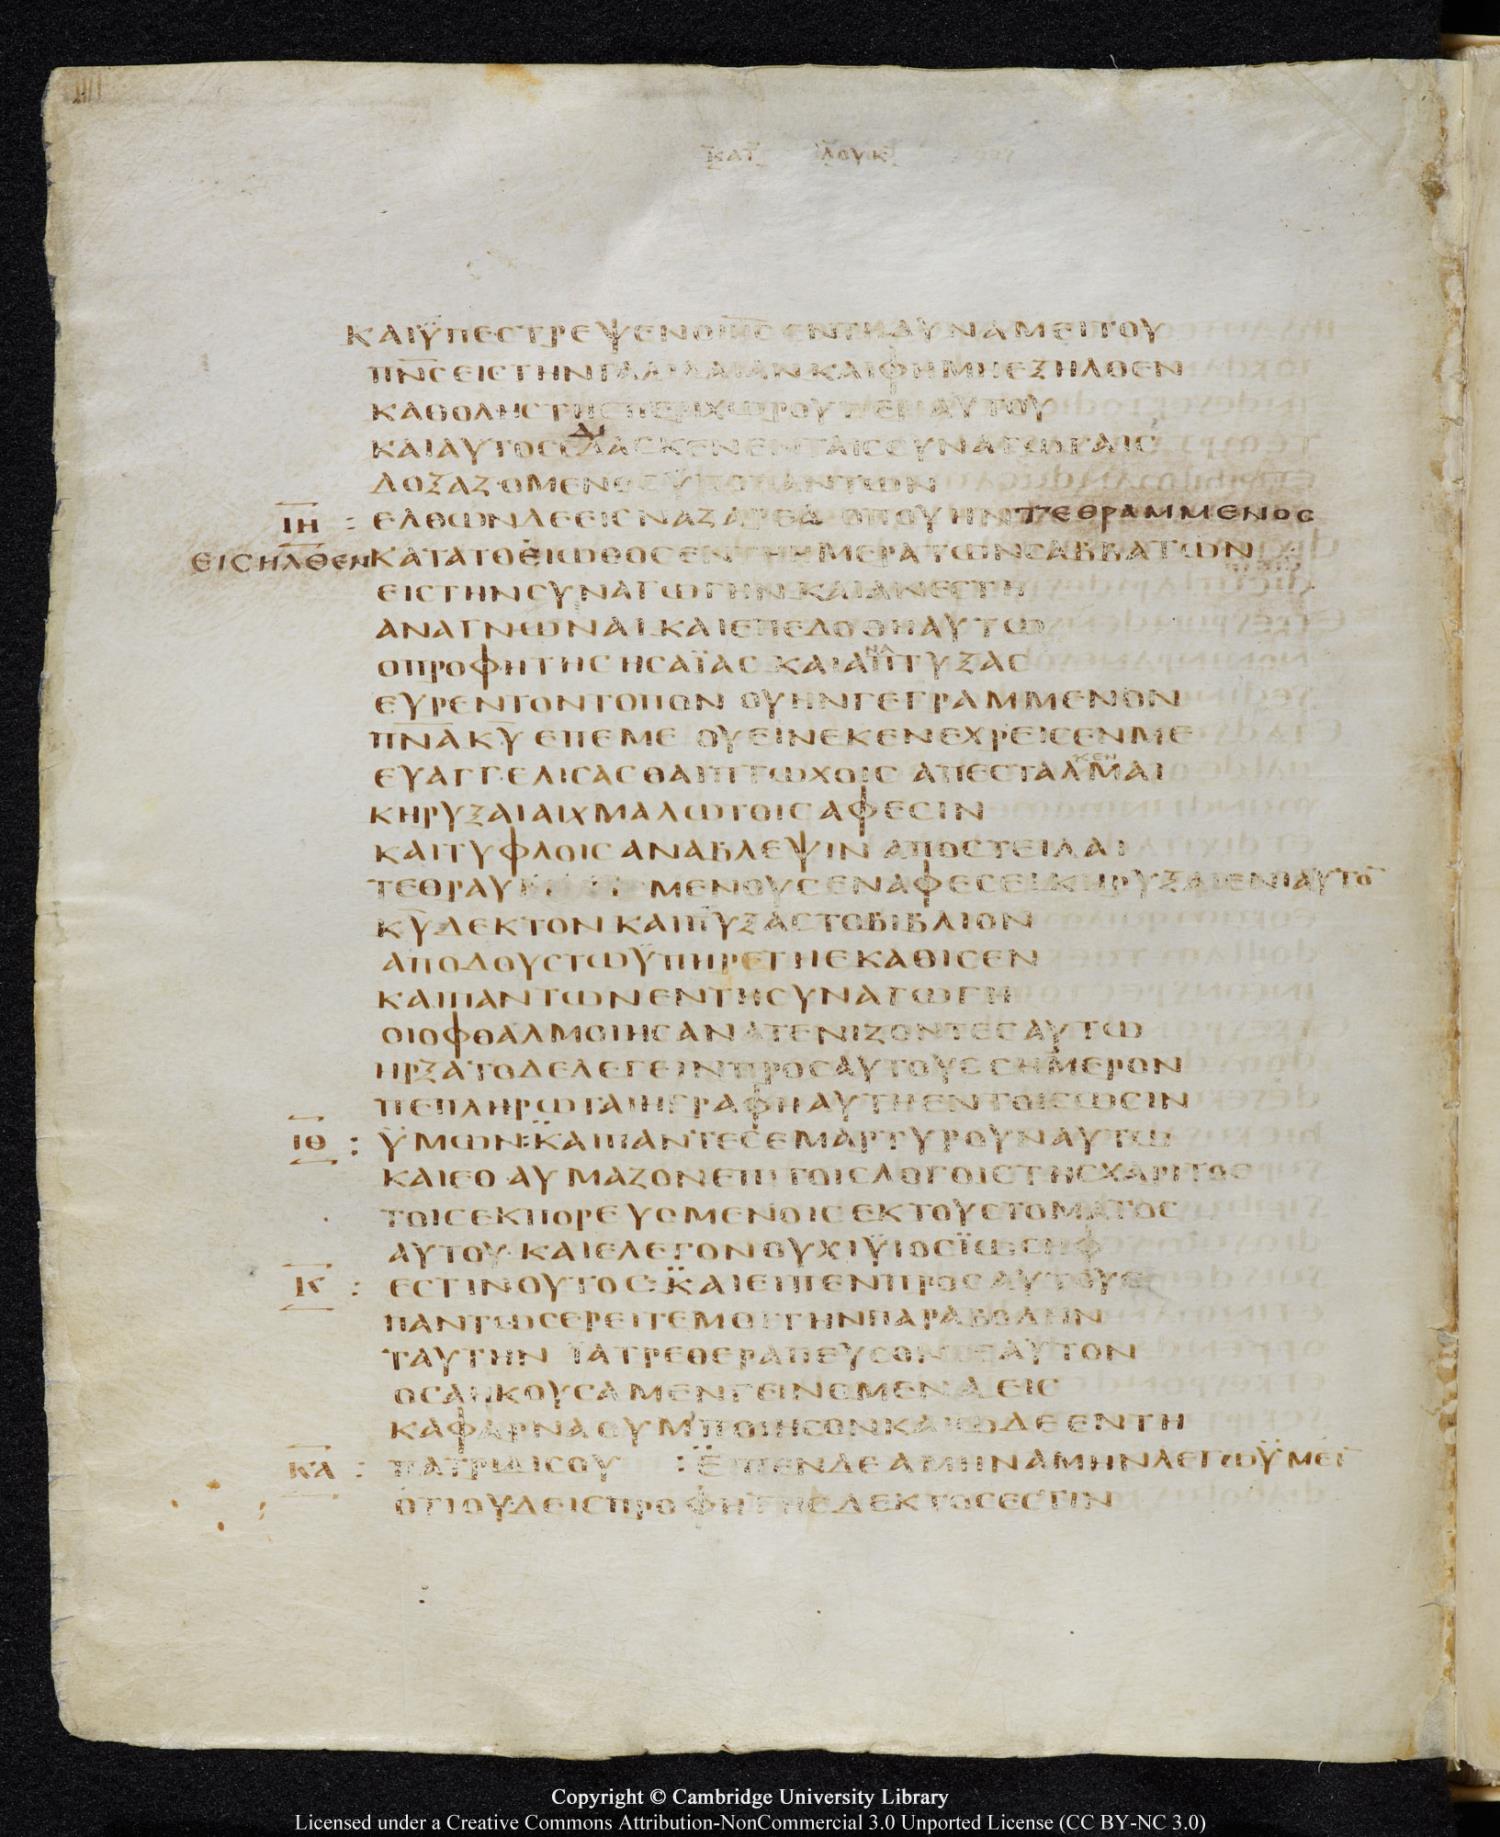 ΚΑΤ ΛΟΥΚ
ΚΑΙΫΠΕСΤΡΕΨΕΝΟΙΗС ΕΝΤΗΔΥΝΑΜΕΙΤΟΥ
ΠΝСΕΙСΤΗΝΓΑΛΙΛΑΙΑΝΚΑΙΦΗΜΗΕΞΗΛΘΕΝ
ΚΑΘΟΛΗСΤΗСΠΕΡΙΧΩΡΟΥΠΕΡΙΑΥΤΟΥ
ΔΙ
ΚΑΙΑΥΤΟСΕΔΑСΚΕΝΕΝΤΑΙССΥΝΑΓΩΓΑΙС
ΔΟΞΑΖΟΜΕΝΟСΫΠΟΠΑΝΤΩΝ
ΙΗ : ΕΛΘΩΝΔΕΕΙСΝΑΖΑΡΕΔ ΟΠΟΥΗΝ ΤΕΘΡΑΜΜΕΝΟС
ΕΙСΗΛΘΕΝ ΚΑΤΑΤΟΕΙΩΘΟСΕΝΤΗΗΜΕΡΑΤΩΝСΑΒΒΑΤΩΝ
ΕΙСΤΗΝСΥΝΑΓΩΓΗΝ ΚΑΙΑΝΕСΤΗ
ΑΝΑΓΝΩΝΑΙ ΚΑΙΕΠΕΔΟΘΗΑΥΤΩ
ΟΠΡΟΦΗΤΗС ΗСΑΪΑС ΚΑΙΑΠΤΥΞΑС
ΕΥΡΕΝΤΟΝΤΟΠΟΝ ΟΥΗΝΓΕΓΡΑΜΜΕΝΟΝ
ΠΝΑΚΥ ΕΠΕΜΕ ΟΥΕΙΝΕΚΕΝΕΧΡΕΙСΕΝΜΕ
ΚΕΝ
ΕΥΑΓΓΕΛΙСΑСΘΑΙΠΤΩΧΟΙС ΑΠΕСΤΑΛΜΑΙ
ΚΗΡΥΞΑΙΑΙΧΜΑΛΩΤΟΙСΑΦΕСΙΝ
ΚΑΙΤΥΦΛΟΙСΑΝΑΒΛΕΨΙΝ ΑΠΟСΤΕΙΛΑΙ
ΤΕΘΡΑΥ ΜΕΝΟΥСΕΝΑΦΕСΕΙΚΗΡΥΞΑΙΕΝΙΑΥΤΟ
ΚΥΔΕΚΤΟΝ ΚΑΙΠΥΞΑСΤΟΒΙΒΛΙΟΝ
ΑΠΟΔΟΥСΤΩΫΠΗΡΕΤΗΕΚΑΘΙСΕΝ
ΚΑΙΠΑΝΤΩΝΕΝΤΗСΥΝΑΓΩΓΗ
ΟΙΟΦΘΑΛΜΟΙΗСΑΝΑΤΕΝΙΖΟΝΤΕСΑΥΤΩ
ΗΡΞΑΤΟΔΕΛΕΓΕΙΝΠΡΟСΑΥΤΟΥССΗΜΕΡΟΝ
ΠΕΠΛΗΡΩΤΑΙΗΓΡΑΦΗΑΥΤΗΕΝΤΟΙСΩСΙΝ
ΙΘ : ΫΜΩΝ:ΚΑΙΠΑΝΤΕСΕΜΑΡΤΥΡΟΥΝΑΥΤΩ
ΚΑΙΕΘΑΥΜΑΖΟΝΕΠΙΤΟΙСΛΟΓΟΙСΤΗСΧΑΡΙΤΟС
ΤΟΙСΕΚΠΟΡΕΥΟΜΕΝΟΙСΕΚΤΟΥСΤΟΜΑΤΟС
ΑΥΤΟΥ·ΚΑΙΕΛΕΓΟΝΟΥΧΙΫΙΟСΪΩСΗΦ
Κ : ΕСΤΙΝΟΥΤΟС:ΚΑΙΕΙΠΕΝΠΡΟСΑΥΤΟΥС
ΠΑΝΤΩСΕΡΕΙΤΕΜΟΙΤΗΝΠΑΡΑΒΟΛΗΝ
ΤΑΥΤΗΝ ΪΑΤΡΕΘΕΡΑΠΕΥСΟΝСΕΑΥΤΟΝ
ΟСΑΗΚΟΥСΑΜΕΝΓΕΙΝΟΜΕΝΑΕΙС
ΚΑΦΑΡΝΑΟΥΜ ΠΟΙΗСΟΝΚΑΙΩΔΕΕΝΤΗ
ΚΑ : ΠΑΤΡΙΔΙСΟΥ :ΕΙΠΕΝΔΕΑΜΗΝΑΜΗΝΛΕΓΩΫΜΕΙ
ΟΤΙΟΥΔΕΙСΠΡΟΦΗΤΗСΔΕΚΤΟСΕСΤΙΝ
Copyright © Cambridge University Library
Licensed under a Creative Commons Attribution-NonCommercial 3.0 Unported License (CC BY-NC 3.0)